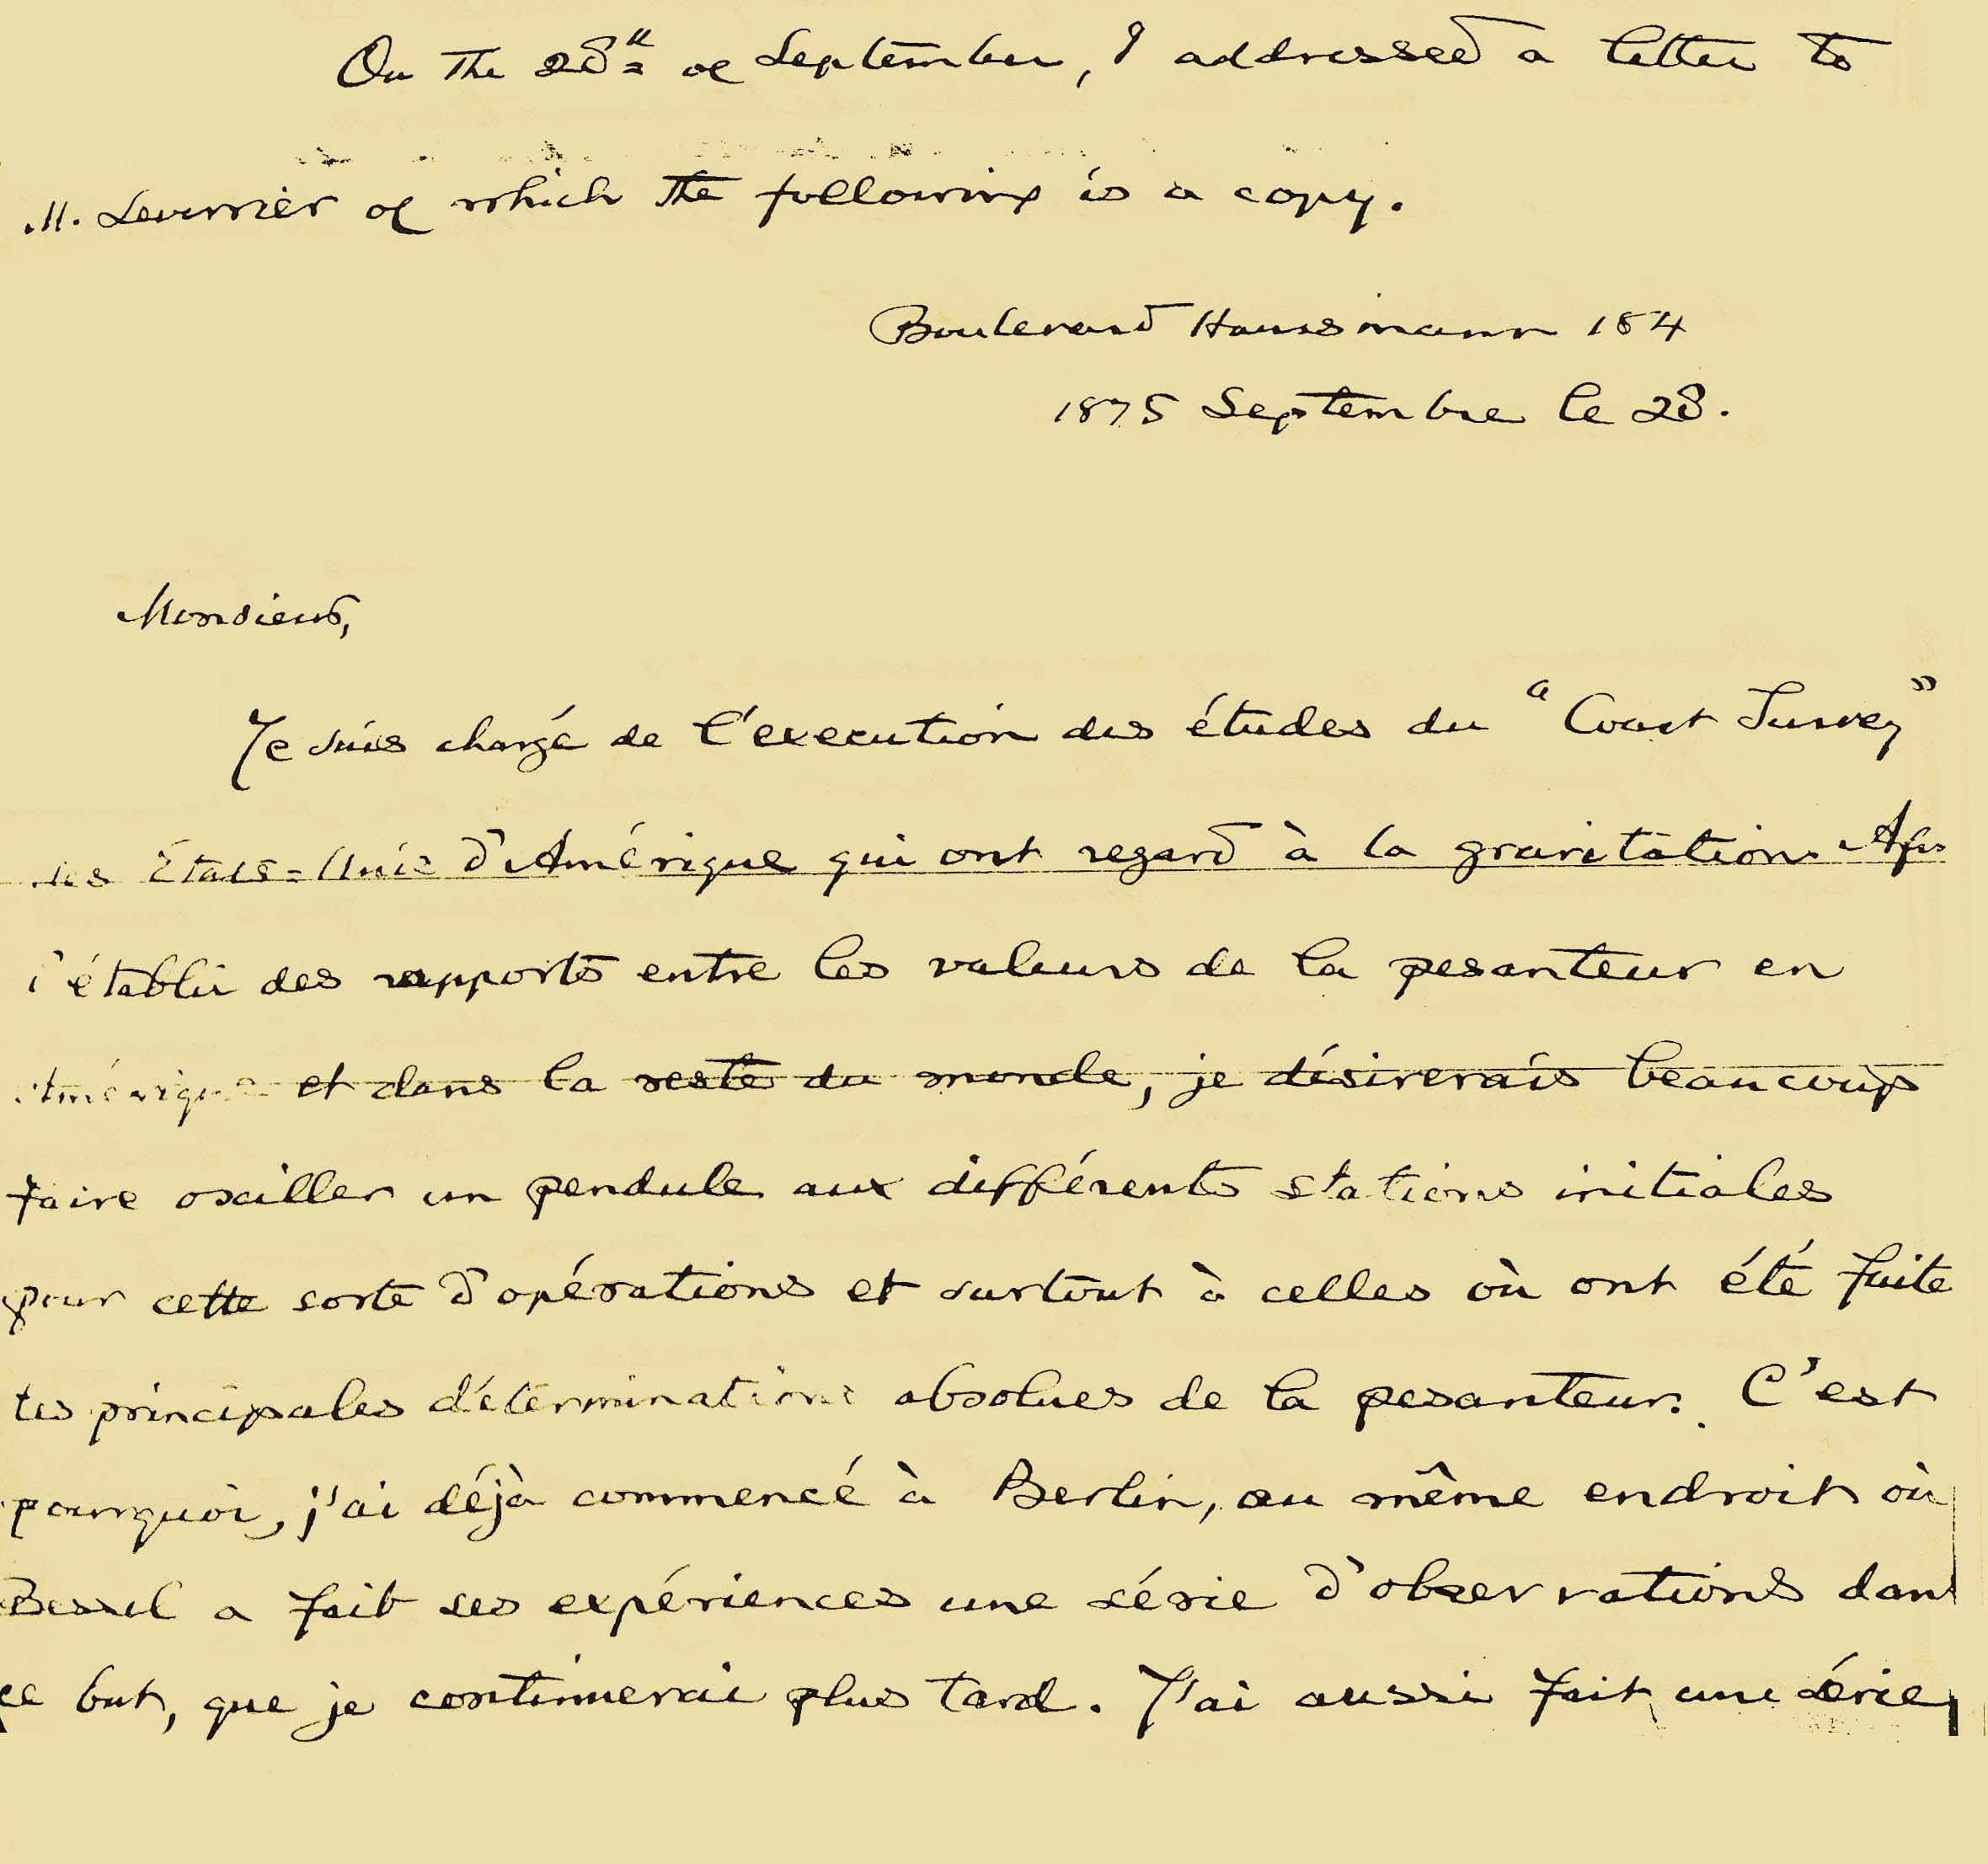 On the 28th of September, I addressed a letter to
M. Leverrier of which the following is a copy.
Boulevard Haussmann 184
1875 Septembre le 28.
Monsieur,
Je suis chargé de l'execution des études du "Coast Survey"
des États=Unis d'Amérique qui ont regard à la gravitation. Afin
d'établir des rapports entre les valeurs de la pesanteur en
Amérique et dans la reste du monde, je désirerais beaucoup
faire osciller un pendule aux différents stations initiales
pour cette sorte d'opérations et surtout à celles où ont été faite
les principales déterminations absolues de la pesanteur. C'est
pourquoi, j'ai déjà commencé à Berlin, au même endroit où
Bessel a fait ses expériences une série d'observations dans
ce but, que je continuerai plus tard. J'ai aussi fait une série